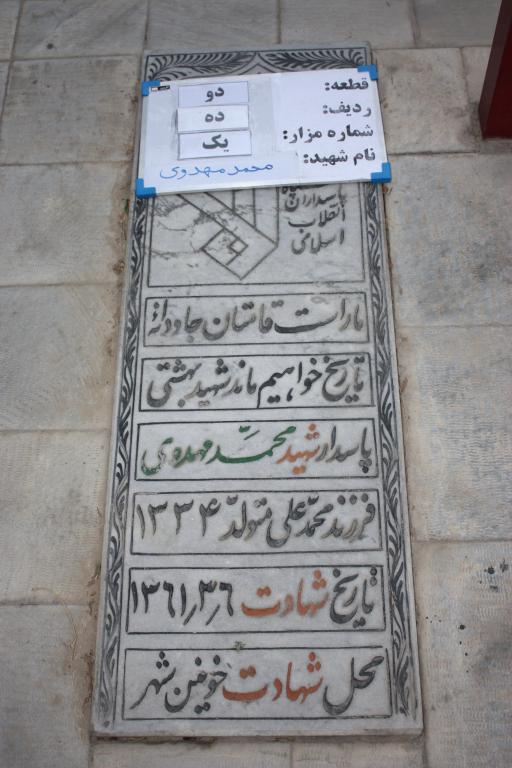 قطعه: دو
ردیف: ده
شماره مزار: یک
نام شهید: محمد مهدوی
پاسداران
انقلاب
اسلامی
ما راست قامتان جاودانه
تاریخ خواهیم ماند شهید بهشتی
پاسدار شهید محمّد مهدوی
فرزند محمّد علی متولّد ۱۳۳۴
تاریخ شهادت ۱۳۶۱٫۳٫۶
محل شهادت خونین شهر